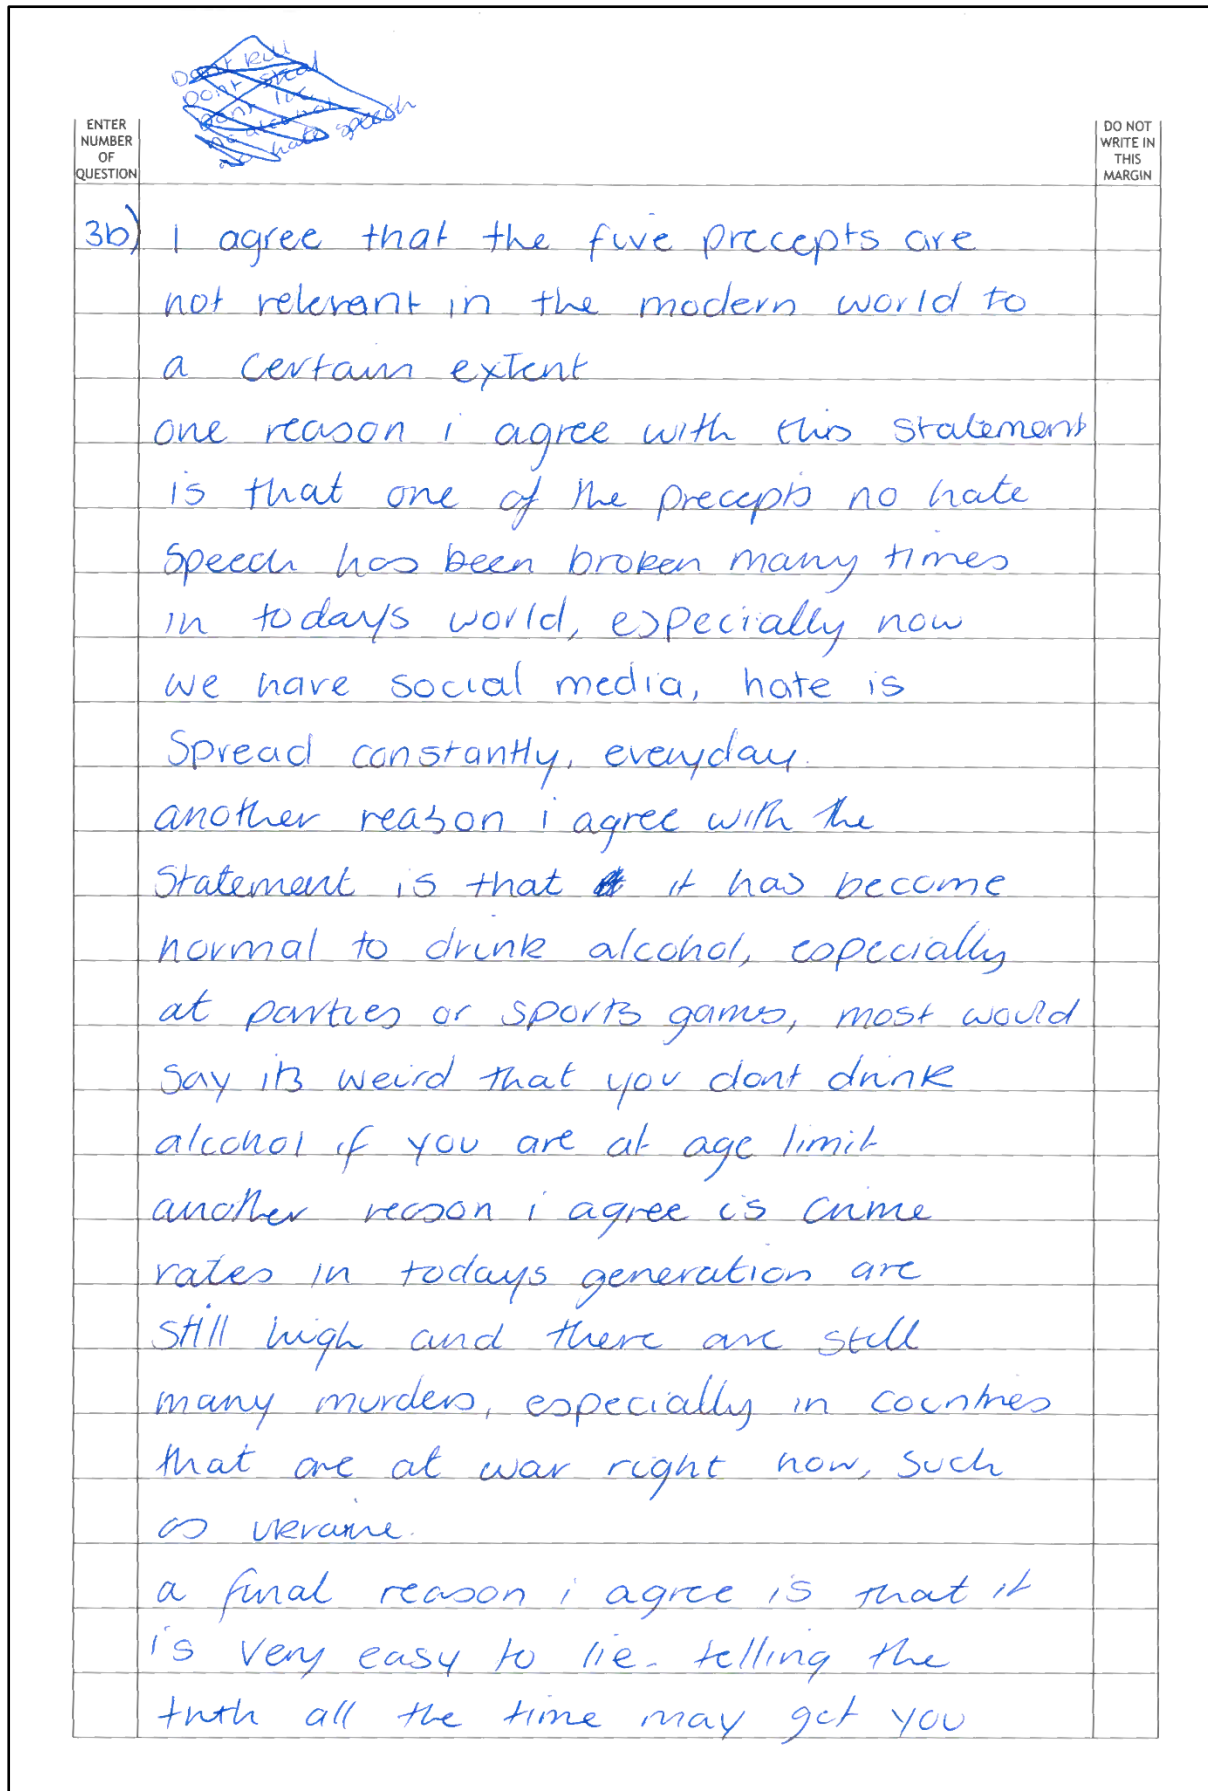 Dont kill
Dont steal
Dont lie
no alcohol
no hate speech
ENTER
NUMBER
OF
QUESTION
DO NOT
WRITE IN
THIS
MARGIN
3b) I agree that the five precepts are
not relevant in the modern world to
a certain extent
one reason i agree with this statement
is that one of the precepts no hate
speech has been broken many times
in todays world, especially now
we have social media, hate is
spread constantly, everyday.
another reason i agree with the
statement is that it has become
normal to drink alcohol, especially
at parties or sports games, most would
say its weird that you dont drink
alcohol if you are at age limit
another reason i agree is crime
rates in todays generation are
still high and there are still
many murders, especially in countries
that are at war right now, such
as ukraine.
a final reason i agree is that it
is very easy to lie. telling the
truth all the time may get you